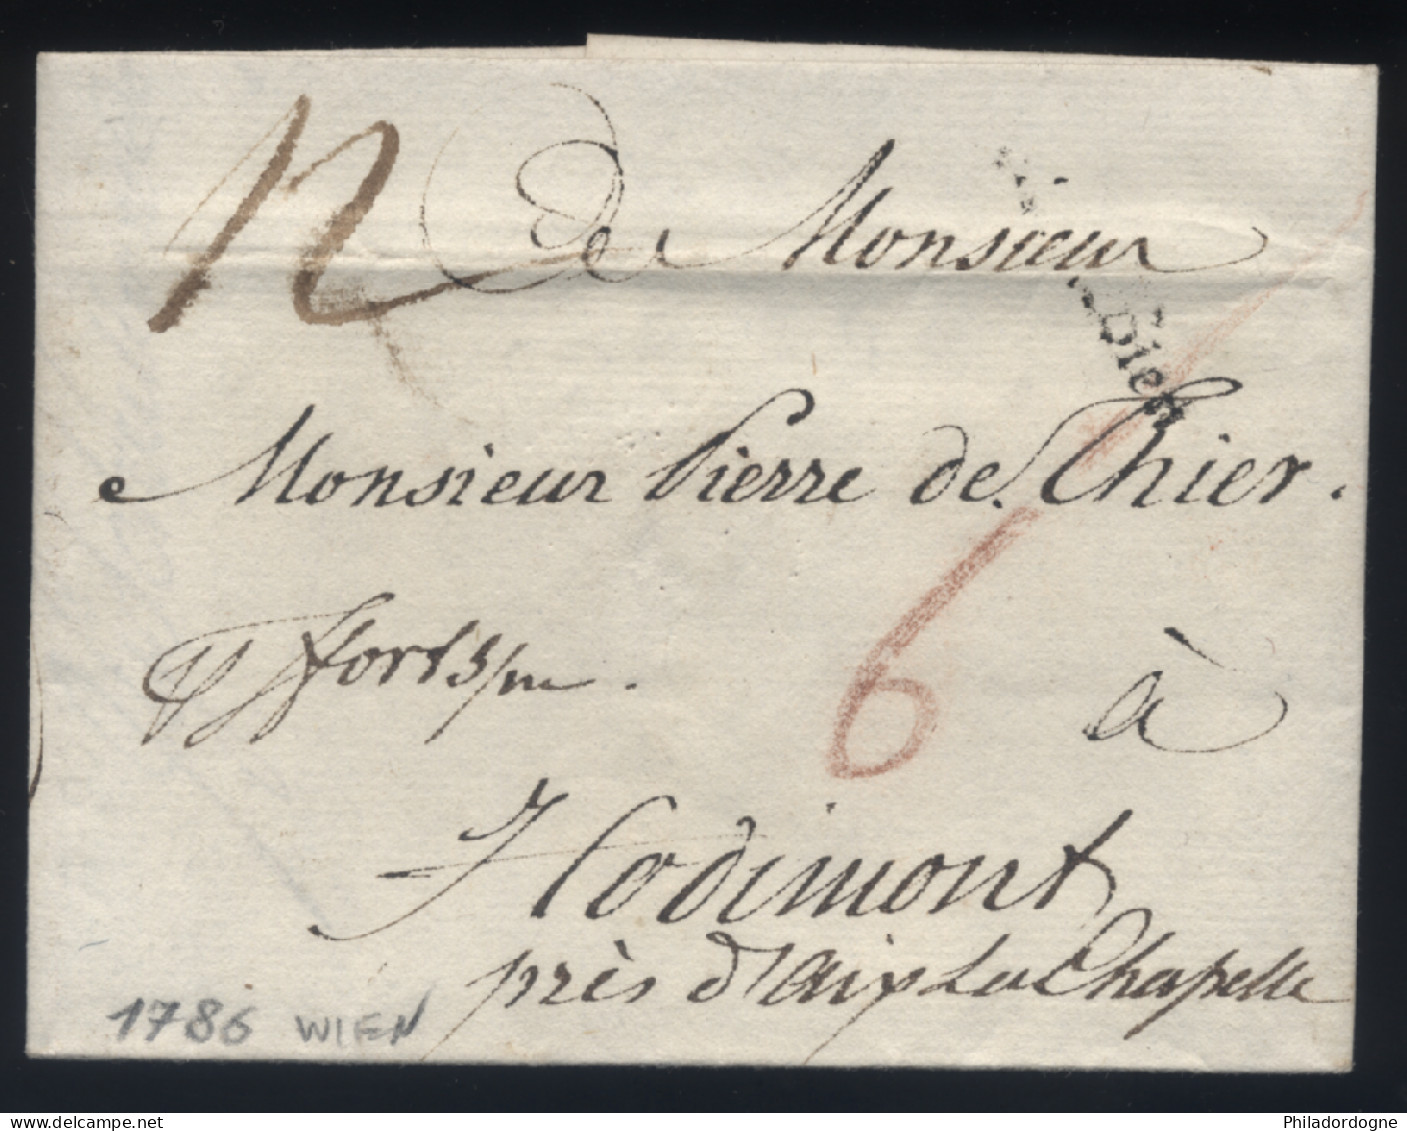 12
de Monsieur
Monsieur Pierre de Thier.
6
à
Hodimont
près d'Aix La Chapelle
1786 WIEN
www.delcampe.net
Philadordogne